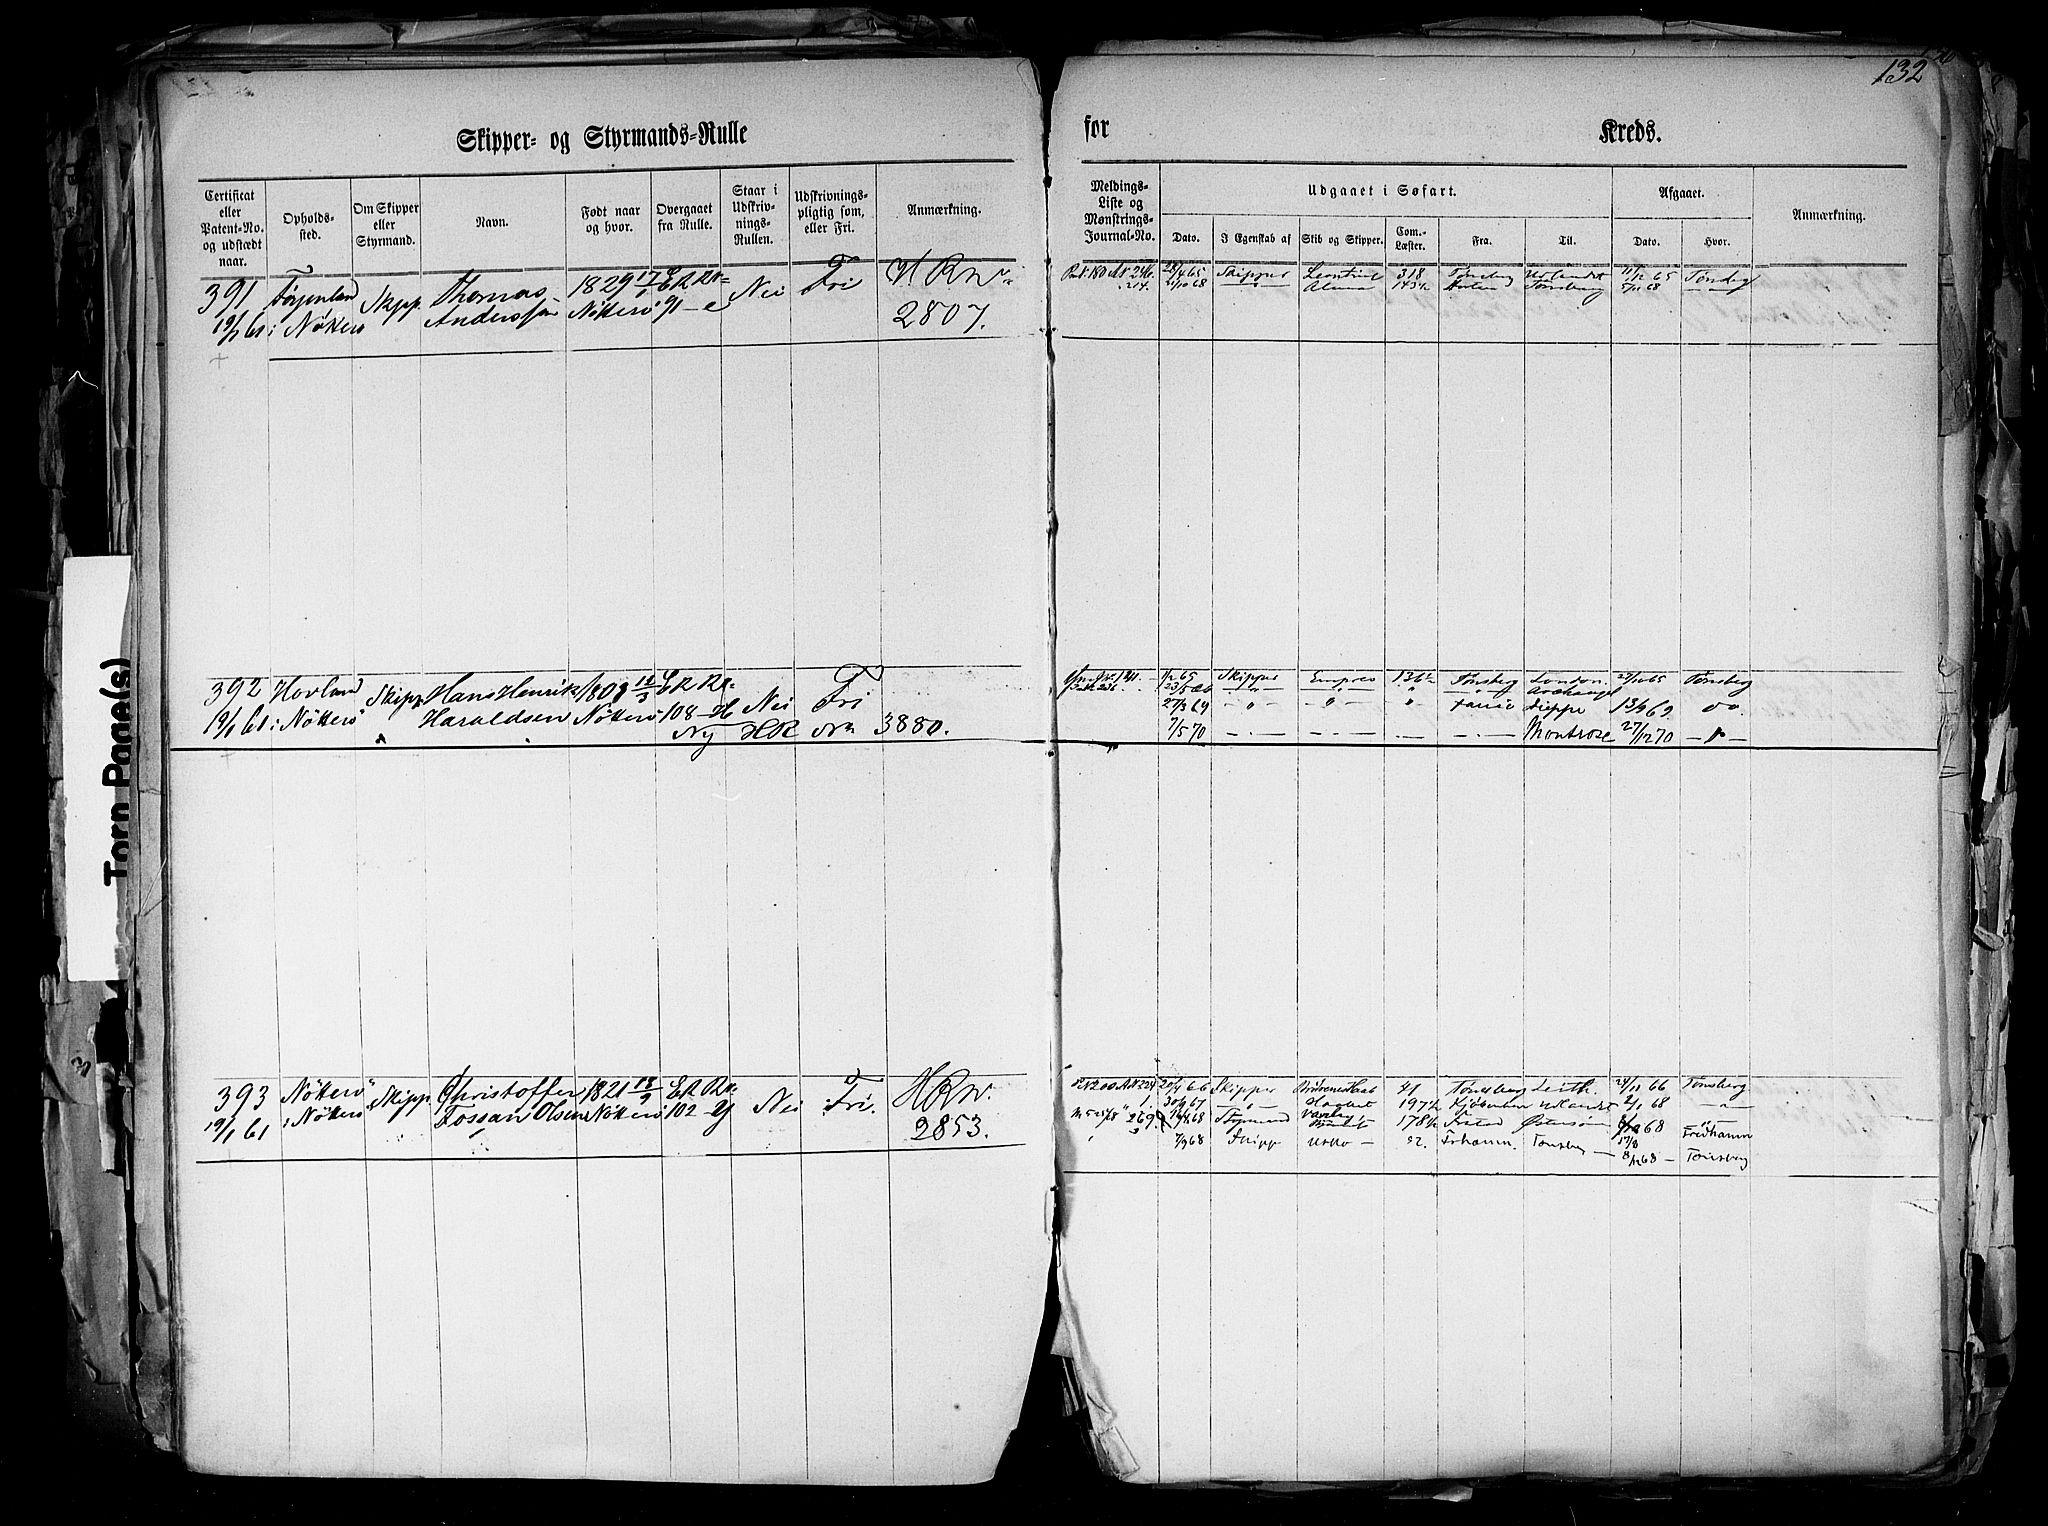 132
Skipper- og Styrmands-Rulle
for
Kreds.
Certificat eller Patent-No. og udstædt naar.
Opholdssted.
Om Skipper eller Styrmand.
Navn.
Født naar og hvor.
Overgaaet fra Rulle.
Staar i Udskrivnings-Rullen.
Udskrivningspligtig som, eller Fri.
Anmærkning.
Meldings-Liste og Mønstrings-Journal-No.
Udgaaet i Søfart.
Dato.
I Egenskab af
Skib og Skipper.
Com.-Læster.
Fra.
Til.
Afgaaet.
Dato.
Hvor.
Anmærkning.
391 Skipp. Thomas 1829 17/ ER No Nei Fri HR No
19/1 61 i Nøtterø Anderssen Nøtterø 91-e 2807.
28/4 65 Skipper Leontine 318 Tønsberg Udlandet 65 Tønsberg
214. 21/10 68 " Alma Tønsberg 5/11 68
392 Hovland Skipp. Hans Henrik 12/3 ER No Nei Fri
19/1 61 i Nøtterø Haraldsen Nøtterø 108-H
Ny HR No 3880.
1/2 65 Skipper Empres 136½ Tønsberg London. 65 Tønsberg
236. 23/5 66 -"- " -"- Archangel
27/3 69 -"- -"- -"- Dieppe 69. do.
7/5 70 -.- -.- -.- -.- Montrose 27/12 70 -"-
393 Nøtterø Skipp. Christoffer 1821 18/9 ER No Nei Fri. HR No.
19/1 61 i Nøtterø Fossan Olsen Nøtterø 102-y 2853.
20/4 66 Skipper 41 Tønsberg Leith. 66 Tønsberg
1. 67 -"- 197½ Kjøbenhavn Udlandet 2/1 68 -"-
269. 68 Styrmand 178½ Østersøen 68 Fredhamn
7/9 68 Skipp 52. Frhamn. Tønsberg — 8/12 68 — Tønsberg
Torn Page(s)